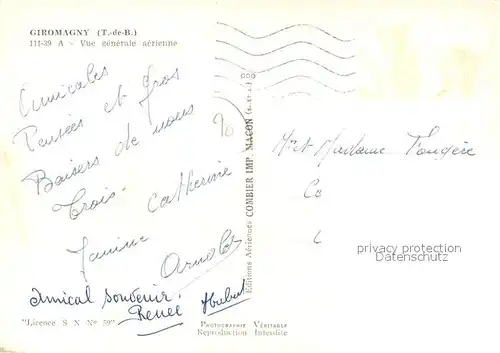 GIROMAGNY (T.-de-B.)
111-39 A - Vue générale aérienne
Amicales
Pensées et Gros
Baisers de nous
Trois.
Catherine
Janine
Arnold
Amical souvenir.
Renée
Hubert
"Licence S N N° 59"
PHOTOGRAPHIE VÉRITABLE
Reproduction Interdite
Editions Aériennes COMBIER IMP. MACON (S.-et-L.)
90
Mr et Madame Fougère
Co
privacy protection
Datenschutz